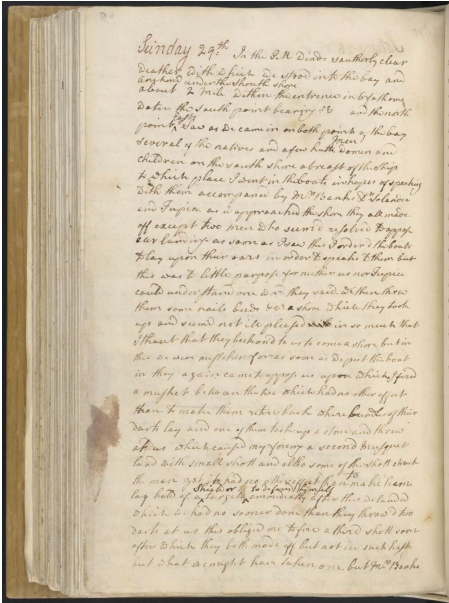 Sunday 29th In the PM Winds southerly clear
weather with which we stood into the bay and
Anchor'd under the South shore
about 2 Mile within the entrence in 6 fathoms
water the south point bearing SE and the north
point East Saw as we came in on both points of the bay
several of the natives and a few hutts Men women and
children on the south shore abreast of the Ship
to which place I went in the boats in hopes of speaking
with them accompaned by Mr Banks Dr Solander
and Tupia as we approached the shore they all made
off except two Men who seem'd resolved to oppose
our landing as soon as I saw this I orderd the boats
to lay upon their oars in order to speake to them but
this was to little purpose for neither us nor Tupia
could understand one word they said. we then threw
them some nails beeds &ca a shore which they took
up and seem'd not ill pleased in so much that
I thout that they beckon'd to us to come a shore but in
this we were mistaken for as soon as we put the boat
in they again came to oppose us upon which I fired
a musket between the two which had no other effect
than to make them retire back where bundles of thier
darts lay and one of them took up a stone and threw
at us which caused my fireing a second Musquet
load with small shott and altho some of the shott struck
the man yet it had no other effect than to make him
lay hold of a Shield or target to defend himself emmidiatly after this we landed
which we had no sooner done than they throw'd two
darts at us this obliged me to fire a third shott soon
after which they both made off but not in such hast
but what we might have taken one, but Mr Banks